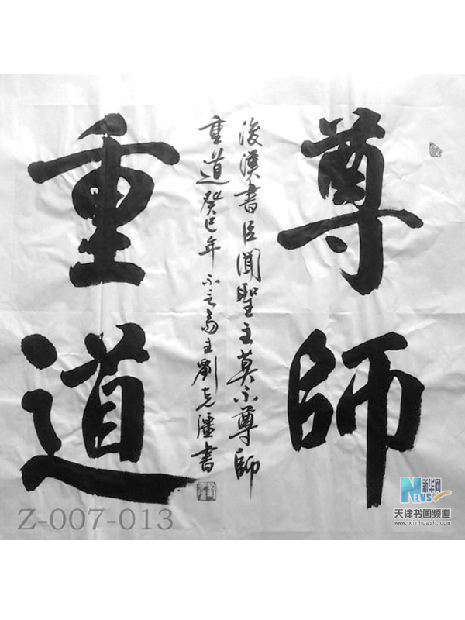 尊師
重道
後漢書臣聞聖主莫不尊師
重道癸巳年
書
Z-007-013
NEWS 新华网
天津书画频道
www.xinhuash.com